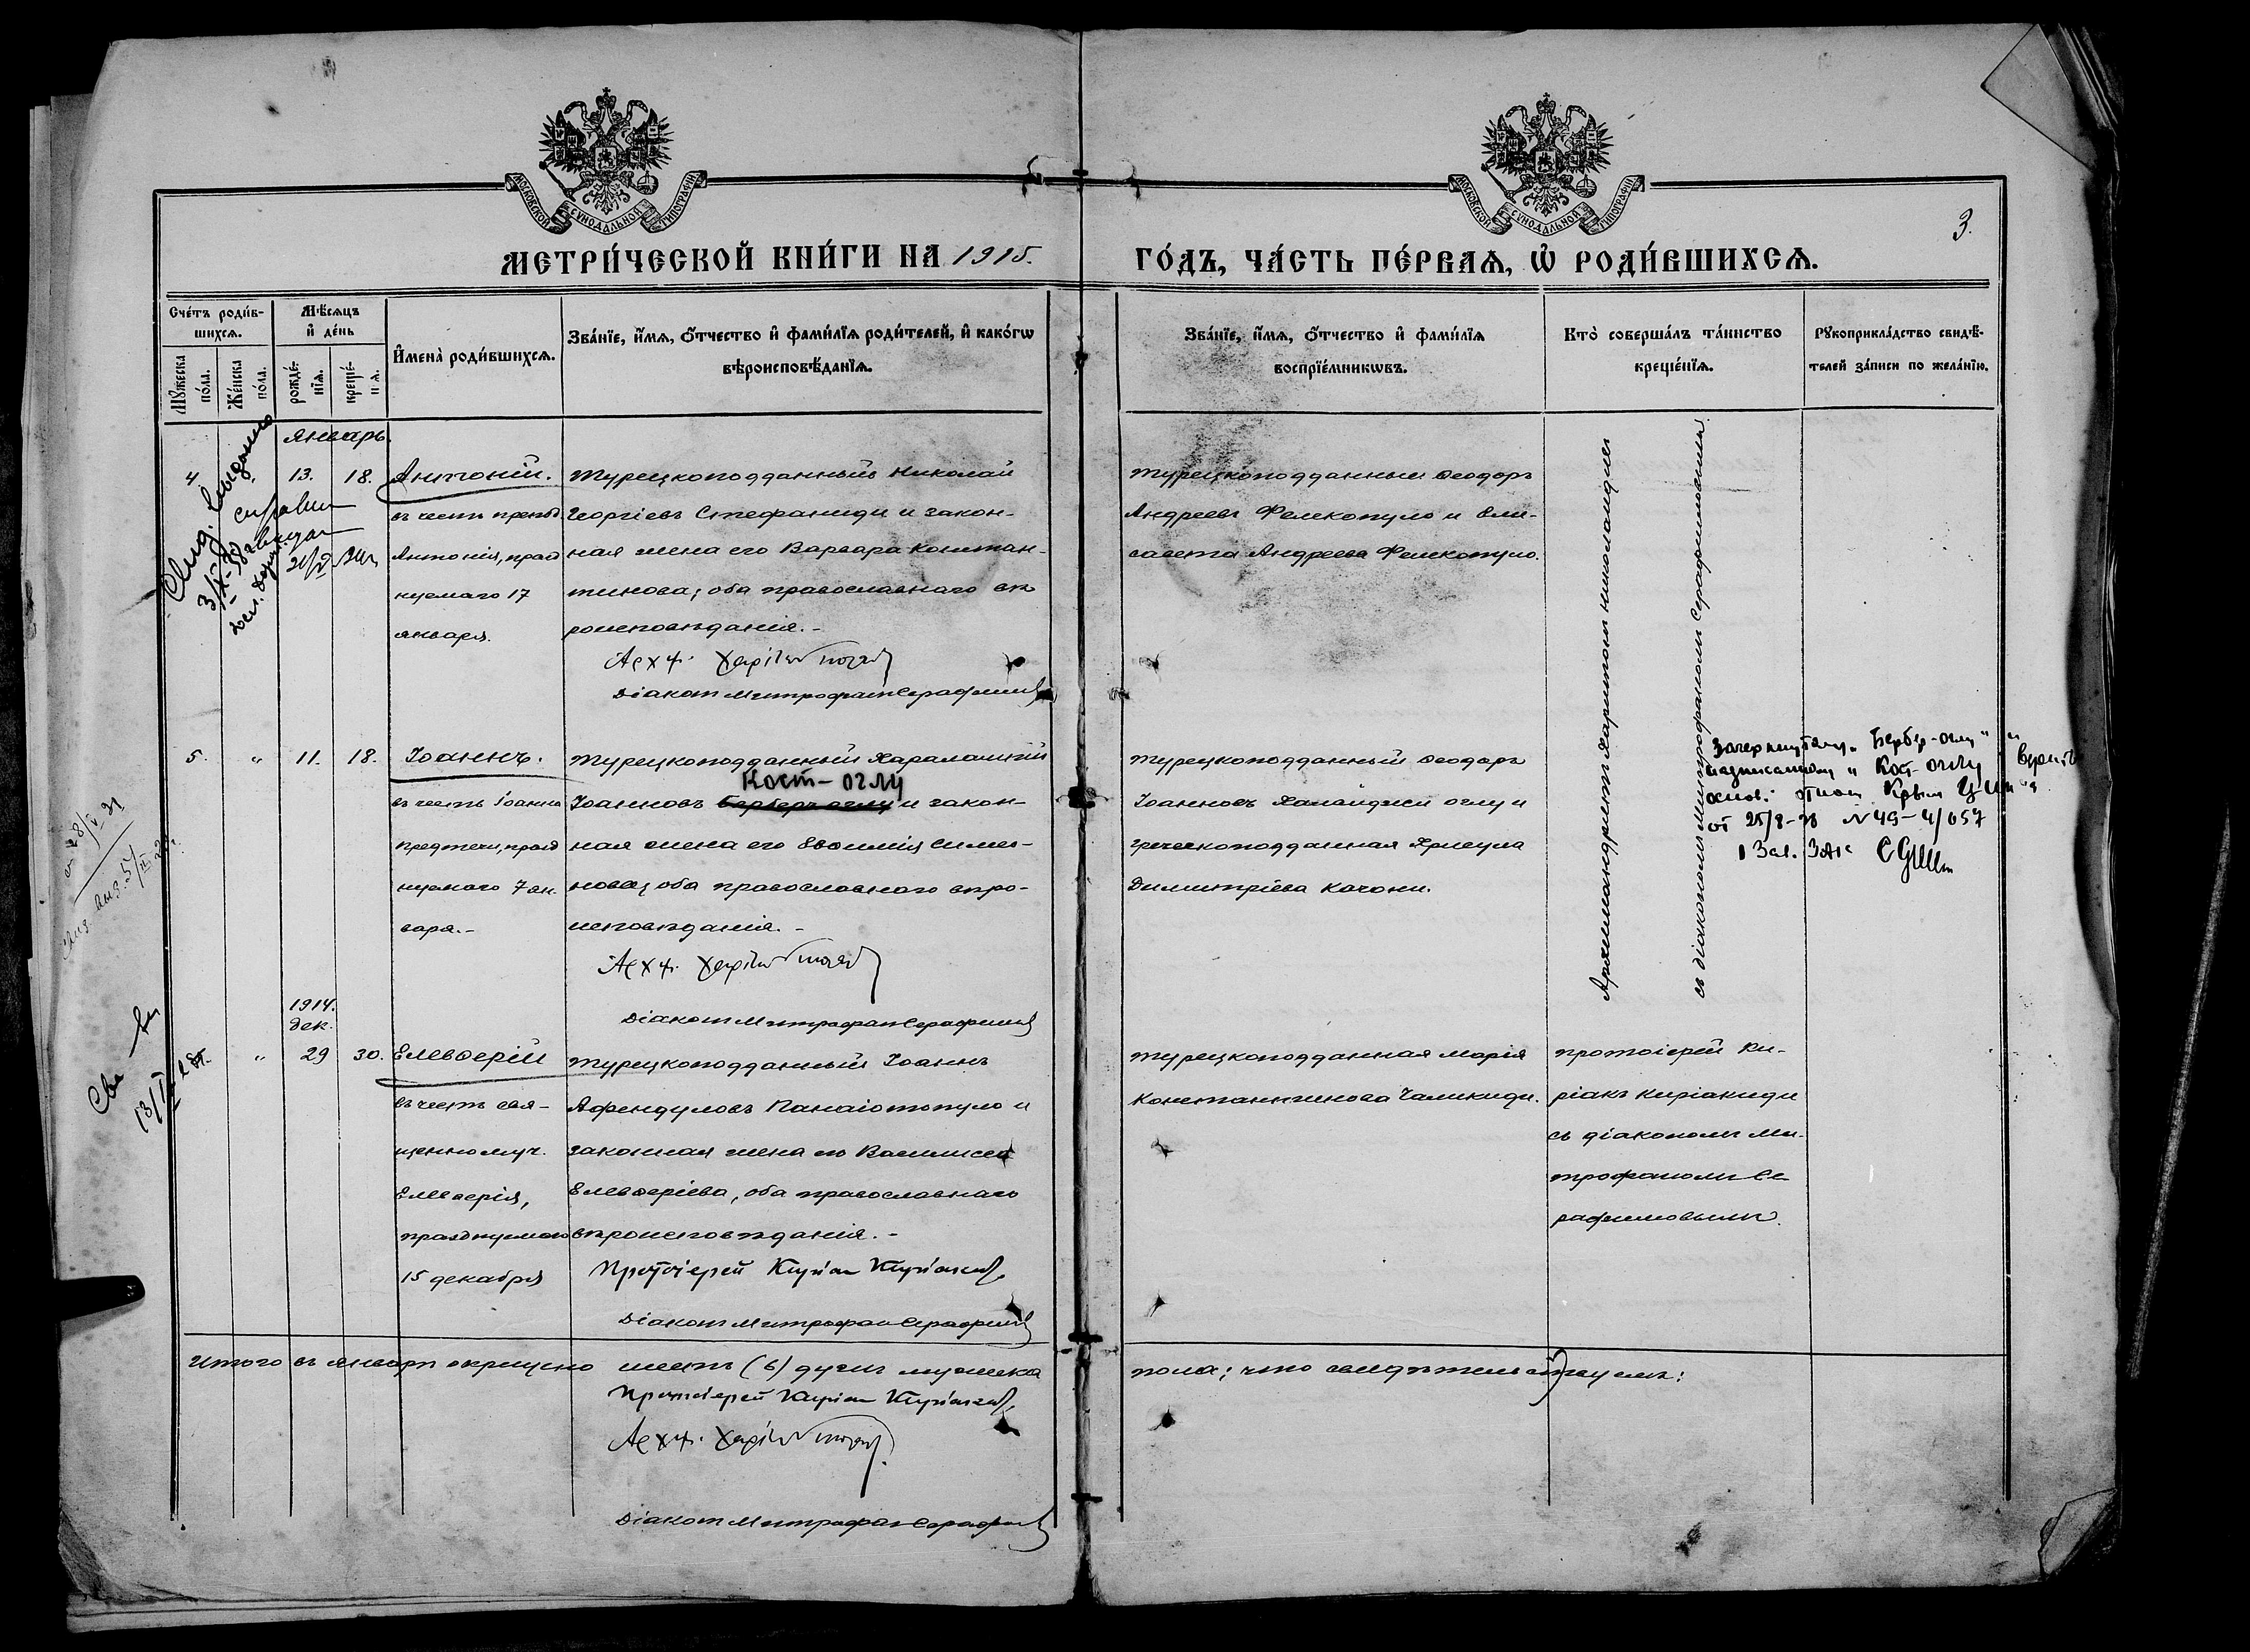 МОСКОВСКОЙ СѴНОДАЛЬНОЙ ТИПОГРАФІИ
МОСКОВСКОЙ СѴНОДАЛЬНОЙ ТИПОГРАФІИ
3.
МЕТРИ́ЧЕСКОЙ КНИ́ГИ НА 1915.
ГО́ДЪ, ЧА́СТЬ ПЕ́РВАѦ, Ѡ҆ РОДИ́ВШИХСѦ.
Сче́тъ роди́в-
шихсѧ.
Мѣ́сѧцъ
и҆ де́нь
И҆мена̀ роди́вшихсѧ.
Зва́нїе, и҆́мѧ, ѻ҆́тчество и҆ фами́лїѧ роди́телей, и҆ како́гѡ
вѣроисповѣ́данїѧ.
Зва́нїе, и҆́мѧ, ѻ҆́тчество и҆ фами́лїѧ
воспрїе́мникѡвъ.
Кто̀ соверша́лъ та́инство
креще́нїѧ.
Рꙋкоприкла́дство свидѣ́-
телей за́писи по жела́нїю.
Мꙋ́жеска
по́ла.
Же́нска
по́ла.
рожде́-
нїѧ.
креще́-
нїѧ.
январь.
4. 13. 18. Антоній.
въ честь препод
Антонія, празд
нуемаго 17
января.
Турецкоподданный Николай
Георгіевъ Стефаниди и закон-
ная жена его Варвара Констан-
тинова; оба православнаго вѣ
роисповѣданія.-
Діаконъ Митрофанъ Серафимов
Турецкоподданный Ѳеодоръ
Андреевъ Фелекопуло и Ели-
савета Андреева Фелекопуло.
Архимандритъ Харитонъ
съ діакономъ Митрофаномъ Серафимовымъ.
5. " 11. 18. Іоаннъ.
въ честь Іоанна
Предтечи, празд
нуемаго 7 ян.
варя.-
Турецкоподданный Харалампій
Кост-оглу
Іоанновъ Берберъ оглу и закон-
ная жена его Евѳимія Симео-
нова; оба православнаго вѣро-
исповѣданія.-
Діаконъ Митрофанъ Серафимов
Турецкоподданный Ѳеодоръ
Іоанновъ Хамайджи оглу и
греческоподданная Хрисула
Димитріева Качони.
Зачеркнутому "Бербер-оглу" и
надписанному "Кост-оглу" верить
от 25/8-38 N 49-4/057
1914.
дек.
" 29 30. Елевѳерій
въ честь свя-
щенномуч.
Елевѳерія,
празднуемаго
15 декабря
Турецкоподданный Іоаннъ
Афендуловъ Панаіотопуло и
законная жена его Василисса
Елевѳеріева, оба православнаго
вѣроисповѣданія.-
Протоіерей Киріак Киріакиди
Діаконъ Митрофанъ Серафимов
Турецкоподданная Марія
Константинова Чаликиди.
протоіерей Ки-
ріакъ Киріакиди
съ діакономъ Ми-
трофаномъ Се-
рафимовымъ.
Итого въ январѣ окрещено шесть (6) душъ мужеска
пола; что свидѣтельствуемъ:
Протоіерей Киріак Киріакиди
Діаконъ Митрофанъ Серафимов